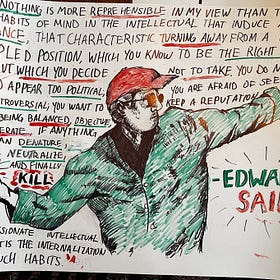 NOTHING IS MORE REPREHENSIBLE IN MY VIEW THAN
HABITS OF MIND IN THE INTELLECTUAL THAT INDUCE
ANCE, THAT CHARACTERISTIC TURNING AWAY FROM A
PLED POSITION, WHICH YOU KNOW TO BE THE RIGHT
UT WHICH YOU DECIDE NOT TO TAKE. YOU DO N
O APPEAR TOO POLITICAL; YOU ARE AFRAID OF SEE
TROVERSIAL; YOU WANT TO KEEP A REPUTATION
BEING BALANCED, OBJECTIVE,
ERATE. IF ANYTHING
AN DENATURE,
NEUTRALIZE,
AND FINALLY
KILL
SSIONATE INTELLECTUAL
T IS THE INTERNALIZATION
UCH HABITS."
-EDWA
SAI